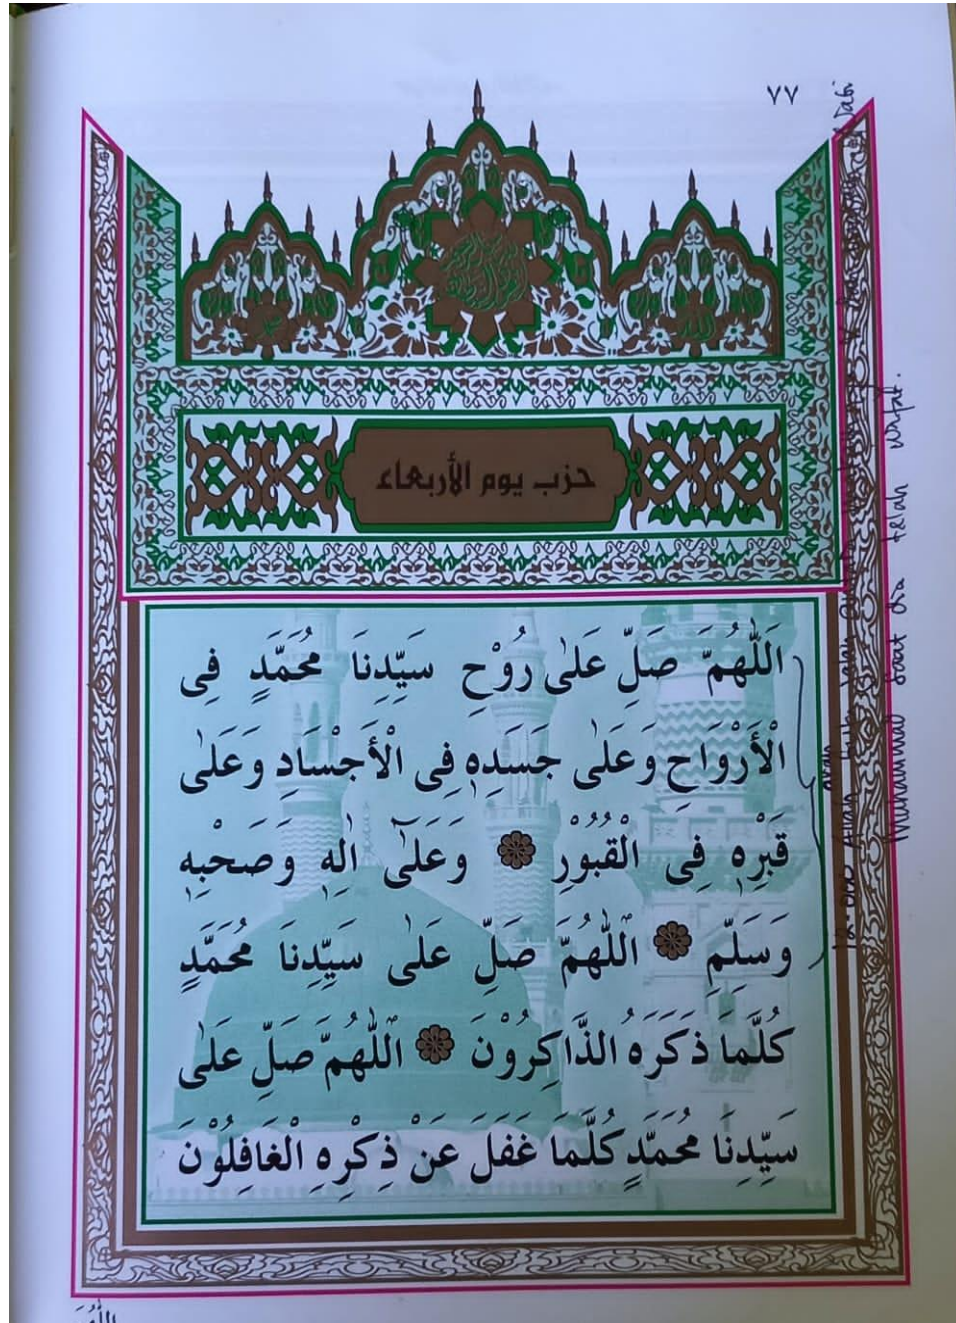 ٧٧
حزب يوم الأربعاء
اَللّٰهُمَّ صَلِّ عَلٰى رُوْحِ سَيِّدِنَا مُحَمَّدٍ فِى
الْأَرْوَاحِ وَعَلٰى جَسَدِهٖ فِى الْأَجْسَادِ وَعَلٰى
قَبْرِهٖ فِى الْقُبُوْرِ وَعَلٰٓى اٰلِهٖ وَصَحْبِهٖ
وَسَلِّمِ اللّٰهُمَّ صَلِّ عَلٰى سَيِّدِنَا مُحَمَّدٍ
كُلَّمَا ذَكَرَهُ الذَّاكِرُوْنَ اللّٰهُمَّ صَلِّ عَلٰى
سَيِّدِنَا مُحَمَّدٍ كُلَّمَا غَفَلَ عَنْ ذِكْرِهِ الْغَافِلُوْنَ
Muhammad saat dia telah wafat.